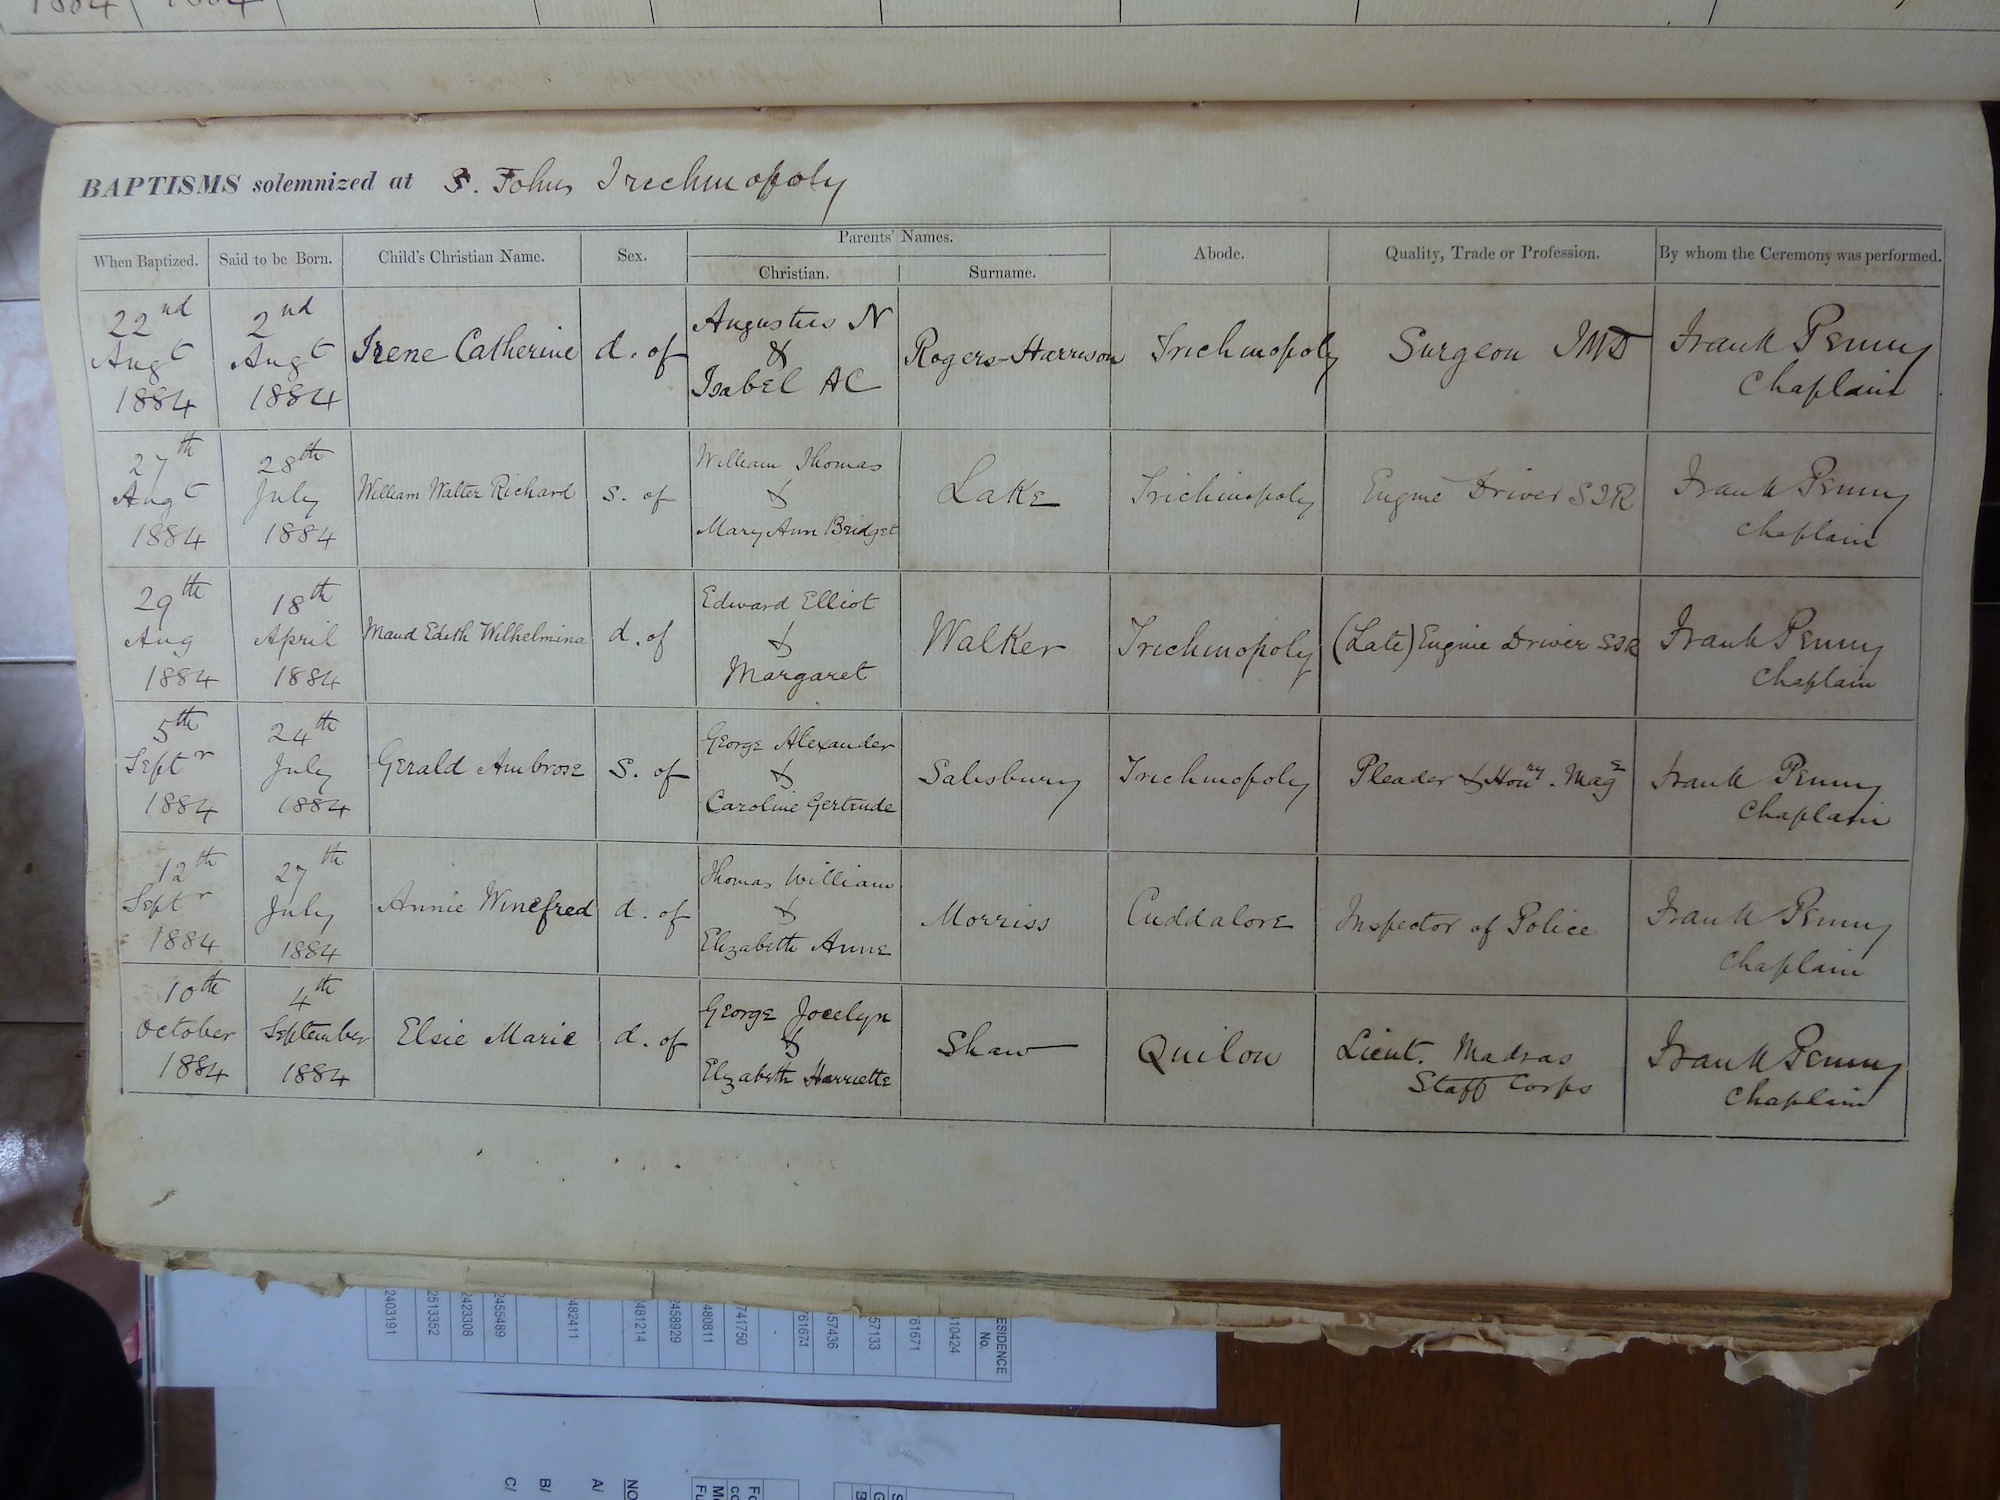 1884 1884
BAPTISMS solemnized at S. Johns Trichinopoly
When Baptized. Said to be Born. Child's Christian Name. Sex. Parents' Names. Abode. Quality, Trade or Profession. By whom the Ceremony was performed.
Christian. Surname.
22nd Augt 1884
2nd Augt 1884
Irene Catherine
d. of
Augustus N
&
Isabel AC
Rogers-Harrison
Trichinopoly
Surgeon IMD
Frank Penny
Chaplain
27th Augt 1884
28th July 1884
William Walter Richard
s. of
William Thomas
&
Mary Ann Bridget
Lake
Trichinopoly
Engine Driver SIR
Frank Penny
Chaplain
29th Aug 1884
18th April 1884
Maud Edith Wilhelmina
d. of
Edward Elliot
&
Margaret
Walker
Trichinopoly
(Late) Engine Driver SIR
Frank Penny
Chaplain
5th Septr 1884
24th July 1884
Gerald Ambrose
s. of
George Alexander
&
Caroline Gertrude
Salisbury
Trichinopoly
Pleader & Hony. Mage
Frank Penny
Chaplain
12th Septr 1884
27th July 1884
Annie Winefred
d. of
Thomas William
&
Elizabeth Anne
Morriss
Cuddalore
Inspector of Police
Frank Penny
Chaplain
10th October 1884
4th September 1884
Elsie Marie
d. of
George Jocelyn
&
Elizabeth Harriette
Shaw
Quilon
Lieut. Madras
Staff Corps
Frank Penny
Chaplain
2403191
2513352
2423308
2455489
482411
2481214
2458929
480811
741750
761671
57436
57133
61671
10424
ESIDENCE
No.
C/
B/
A/
NO